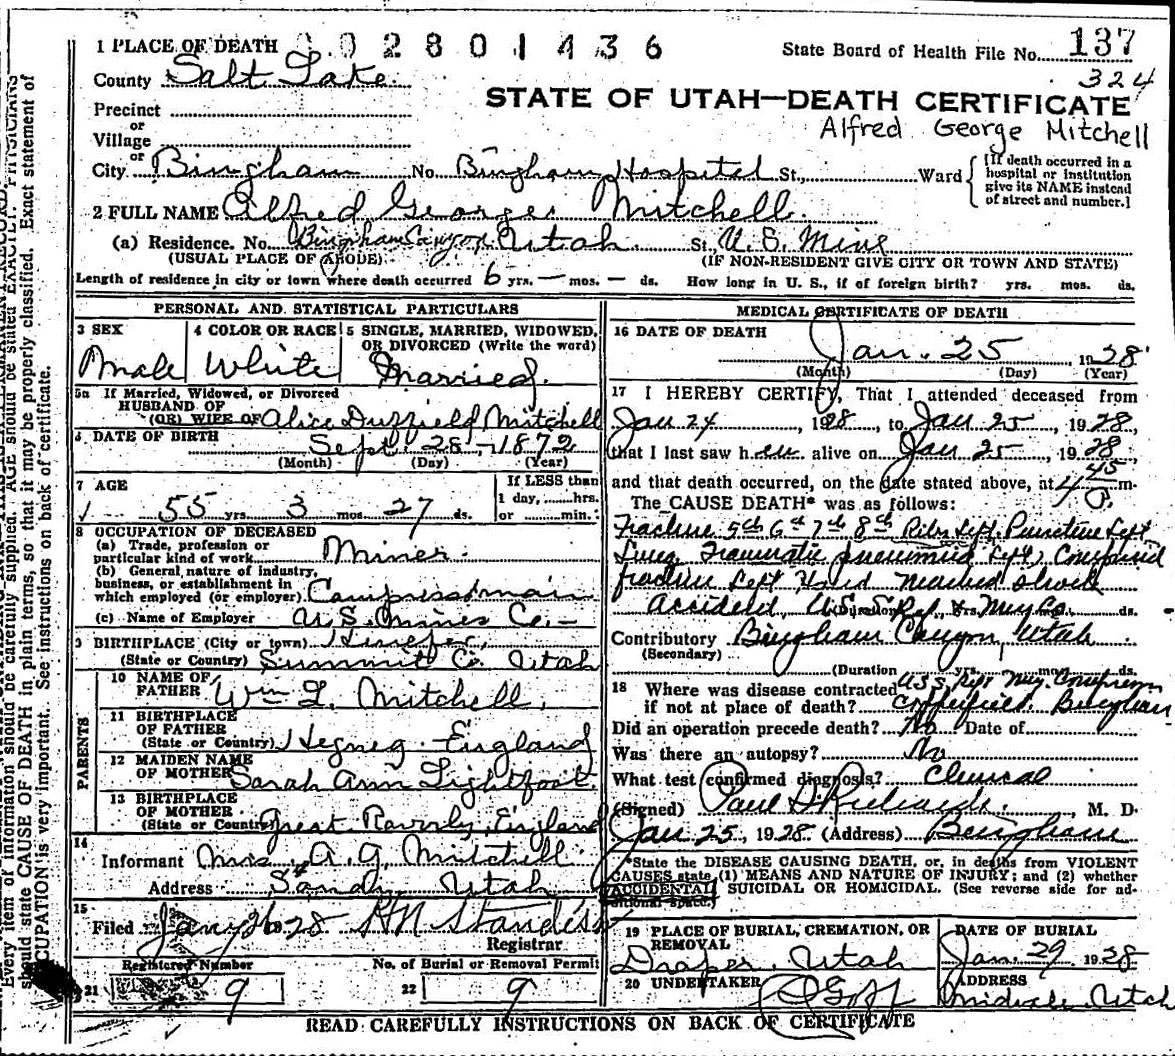 1 PLACE OF DEATH 02801436 State Board of Health File No. 137
County Salt Lake 324
STATE OF UTAH—DEATH CERTIFICATE
Precinct
or
Village
Alfred George Mitchell
or
City Bingham No. Bingham Hospital St., Ward [If death occurred in a hospital or institution give its NAME instead of street and number.]
2 FULL NAME Alfred George Mitchell
(a) Residence. No. Bingham Canyon Utah St. U. S. Mine
(USUAL PLACE OF ABODE) (IF NON-RESIDENT GIVE CITY OR TOWN AND STATE)
Length of residence in city or town where death occurred 6 yrs. — mos. — ds. How long in U. S., if of foreign birth? yrs. mos. ds.
PERSONAL AND STATISTICAL PARTICULARS
3 SEX 4 COLOR OR RACE 5 SINGLE, MARRIED, WIDOWED, OR DIVORCED (Write the word)
Male White Married.
5a If Married, Widowed, or Divorced
HUSBAND OF
(OR) WIFE OF Alice Duffield Mitchell
6 DATE OF BIRTH Sept. 28 - 1872
(Month) (Day) (Year)
7 AGE If LESS than
55 yrs. 3 mos. 27 ds. 1 day, hrs.
or min.
8 OCCUPATION OF DECEASED
(a) Trade, profession or
particular kind of work Miner.
(b) General nature of industry,
business, or establishment in
which employed (or employer) Compressman
(c) Name of Employer U. S. Mines Co. —
9 BIRTHPLACE (City or town) Henefer,
(State or Country) Summit Co. Utah
PARENTS
10 NAME OF
FATHER Wm L. Mitchell.
11 BIRTHPLACE
OF FATHER
(State or Country) England
12 MAIDEN NAME
OF MOTHER Sarah Ann Lightfoot.
13 BIRTHPLACE
OF MOTHER
(State or Country) Great England
14
Informant Mrs. A. G. Mitchell
Address Sandy Utah
15
Filed Jan 26 1928 H N Standish
Registrar
Registered Number No. of Burial or Removal Permit
21 9 22 9
MEDICAL CERTIFICATE OF DEATH
16 DATE OF DEATH
Jan. 25 1928
(Month) (Day) (Year)
17 I HEREBY CERTIFY, That I attended deceased from
Jan 24, 1928, to Jan 25, 1928,
that I last saw h alive on Jan 25, 1928
and that death occurred, on the date stated above, at 4 45 P. m.
The CAUSE DEATH* was as follows:
Fracture 5th 6th 7th 8th Ribs Left, Puncture Left
Lung Traumatic pneumonia Left, Compound
fracture Left Hand Marked shock
Accident, U.S.S. Ref. & Mng Co. ds.
Contributory Bingham Canyon, Utah
(Secondary)
(Duration yrs. mos. ds.
18 Where was disease contracted U.S.S. Ref Mng.
if not at place of death? Copperfield. Bingham
Did an operation precede death? No Date of
Was there an autopsy? No
What test confirmed diagnosis? Clinical
(Signed) Paul S Richards. M. D.
Jan 25, 1928 (Address) Bingham
*State the DISEASE CAUSING DEATH, or, in deaths from VIOLENT
CAUSES state (1) MEANS AND NATURE OF INJURY; and (2) whether
ACCIDENTAL, SUICIDAL OR HOMICIDAL. (See reverse side for ad-
ditional space.)
19 PLACE OF BURIAL, CREMATION, OR REMOVAL DATE OF BURIAL
Draper, Utah Jan. 29 1928
20 UNDERTAKER ADDRESS
Midvale, Utah
READ CAREFULLY INSTRUCTIONS ON BACK OF CERTIFICATE
Every item of information should be carefully supplied. AGE should be stated EXACTLY. PHYSICIANS
should state CAUSE OF DEATH in plain terms, so that it may be properly classified. Exact statement of
OCCUPATION is very important. See instructions on back of certificate.